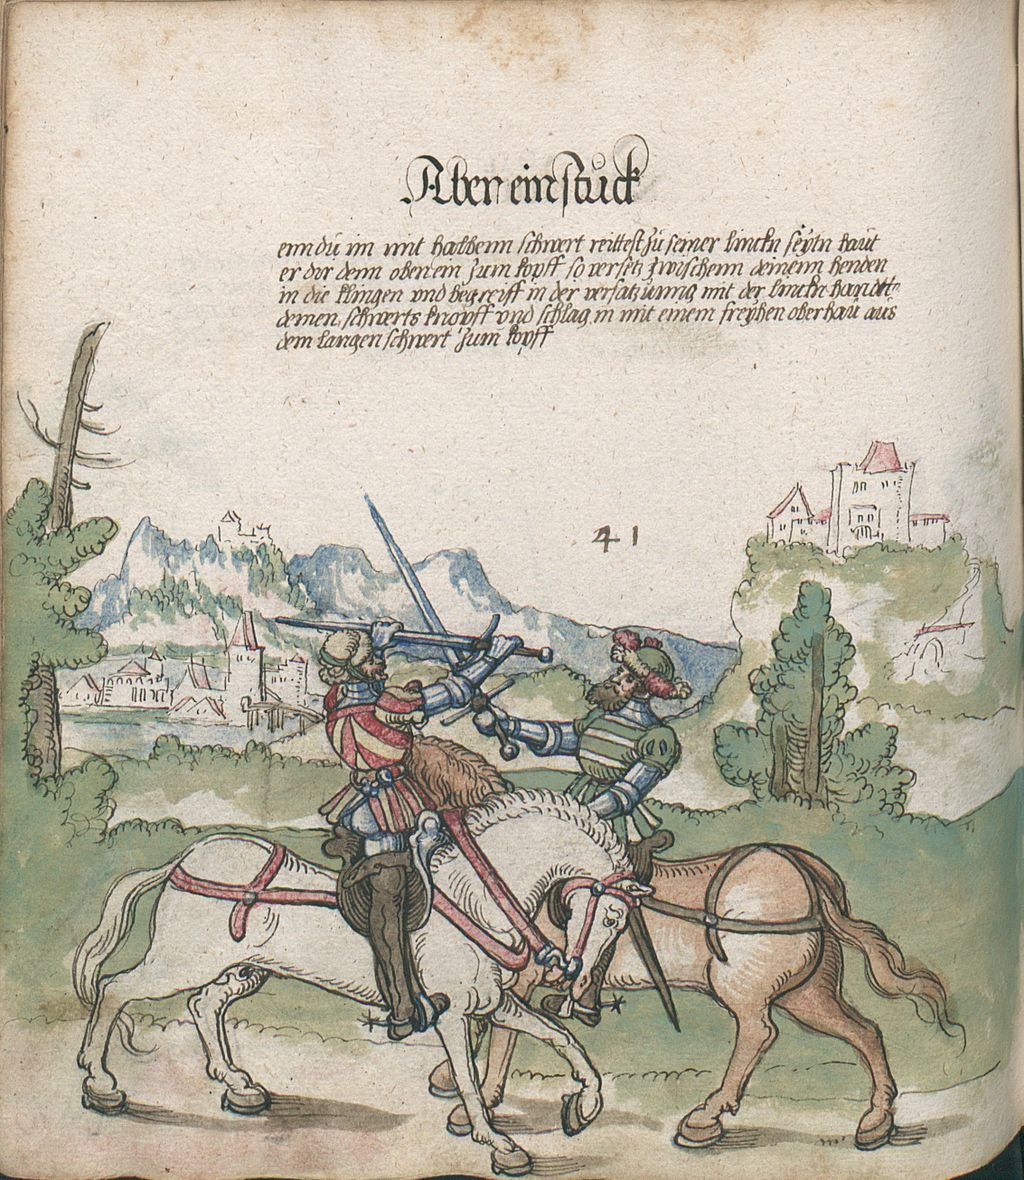 Aber ein stuck
enn du im mit halbenn schwert reittest zu seiner linckn seyttn haut
er dir denn oben ein zum kopff so versetz zwischenn deinenn henden
in die klingen vnd begreiff in der versatzunng mit der linckn handtt
deinen schwerts knopff vnd schlag in mit einem freyhen oberhau aus
dem langen schwert zum kopff
41